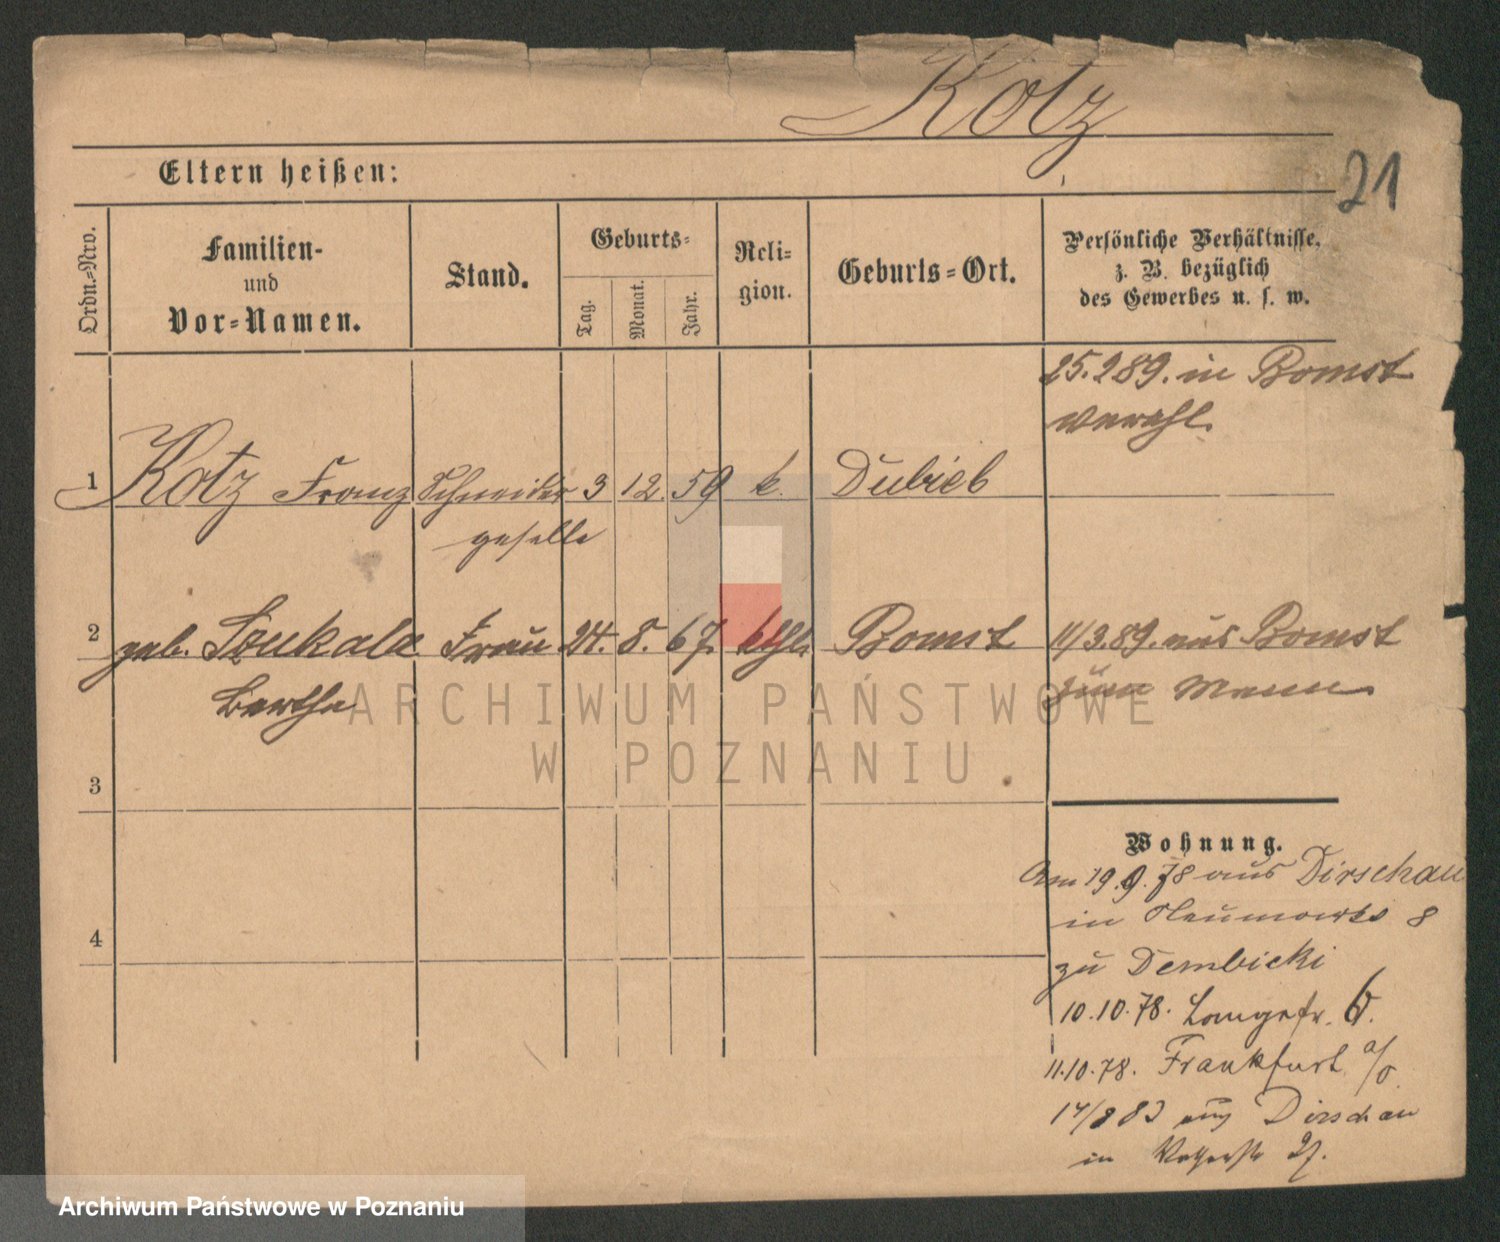 Kotz
21
Eltern heißen:
Ordn.=Nro.
Familien-
und
Vor=Namen.
Stand.
Geburts=
Tag.
Monat.
Jahr.
Reli=
gion.
Geburts=Ort.
Persönliche Verhältnisse,
z. B. bezüglich
des Gewerbes u. s. w.
25.2.89. in Bomst
verehl.
1 Kotz Franz Schneider 3 12. 59 k. Dubieb
geselle
2 geb. Szukala Frau 24. 8. 67. kthl. Bomst 11/3.89. aus Bomst
Bertha zum Mann
3
4
Wohnung.
Am 19.9.78 aus Dirschau
in Neumarkt 8
zu Dembicki
10.10.78. Langestr. 6.
11.10.78. Frankfurt a/O.
17/8 83 aus Dirschau
in 27.
ARCHIWUM PAŃSTWOWE
W POZNANIU
Archiwum Państwowe w Poznaniu